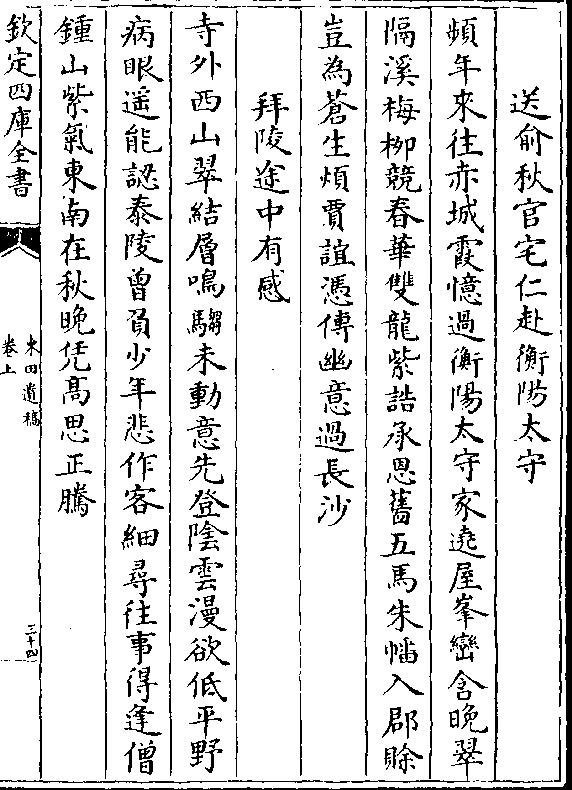 送俞秋官宅仁赴衡陽太守
頻年來往赤城霞憶過衡陽太守家遶屋峯巒含晚翠
隔溪梅柳競春華雙龍紫誥承恩舊五馬朱幡入郡賒
豈為蒼生煩賈誼憑傳幽意過長沙
拜陵途中有感
寺外西山翠結層鳴騶未動意先登陰雲漫欲低平野
病眼遥能認泰陵曾負少年悲作客細尋往事得逢僧
鍾山紫氣東南在秋晚凭髙思正騰
欽定四庫全書
東田遺稿
卷上
三十四